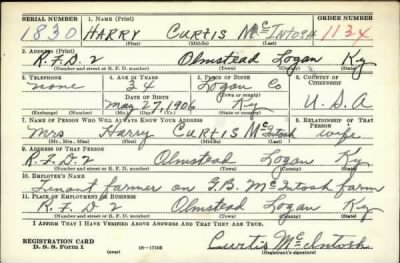 SERIAL NUMBER 1. NAME (Print) ORDER NUMBER
1830 HARRY CURTIS McINTOSH 1134
(First) (Middle) (Last)
2. ADDRESS (Print)
R.F.D. 2 Olmstead Logan Ky
(Number and street or R. F. D. number) (Town) (County) (State)
3. TELEPHONE 4. AGE IN YEARS 5. PLACE OF BIRTH 6. COUNTRY OF CITIZENSHIP
none 34 Logan Co
DATE OF BIRTH (Town or county)
May 27, 1906 Ky U.S.A
(Exchange) (Number) (Mo.) (Day) (Yr.) (State or country)
7. NAME OF PERSON WHO WILL ALWAYS KNOW YOUR ADDRESS 8. RELATIONSHIP OF THAT PERSON
Mrs Harry Curtis McIntosh wife
(Mr., Mrs., Miss) (First) (Middle) (Last)
9. ADDRESS OF THAT PERSON
R.F.D. 2 Olmstead Logan Ky
(Number and street or R. F. D. number) (Town) (County) (State)
10. EMPLOYER'S NAME
Tenant farmer on G.B. McIntosh farm
11. PLACE OF EMPLOYMENT OR BUSINESS
R.F.D 2 Olmstead Logan Ky
(Number and street or R. F. D. number) (Town) (County) (State)
I AFFIRM THAT I HAVE VERIFIED ABOVE ANSWERS AND THAT THEY ARE TRUE.
REGISTRATION CARD
D. S. S. Form 1 (over) 16—17105 Curtis McIntosh
(Registrant's signature)